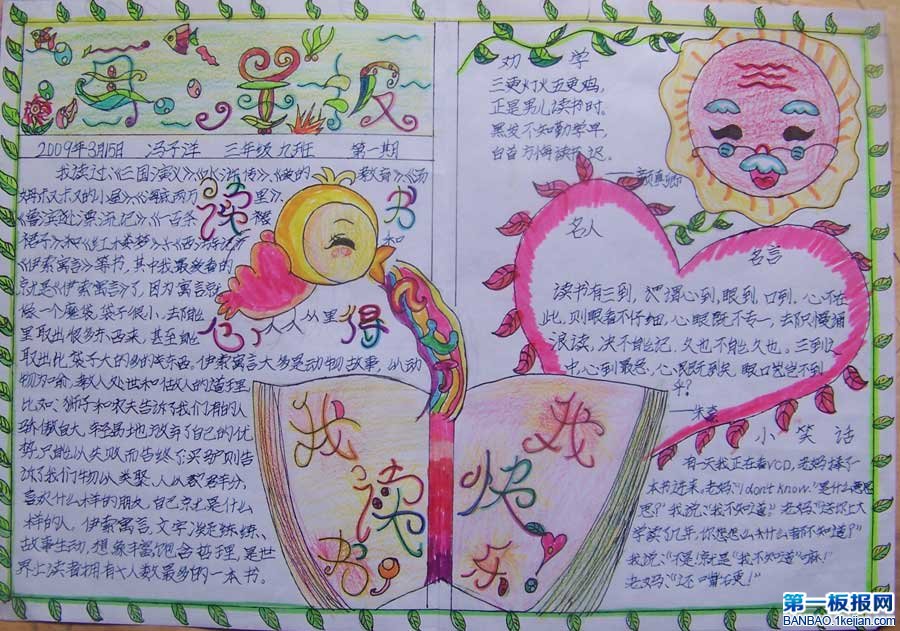 手抄报
2009年3月15日 冯子洋 三年级九班 第一期
我读过《三国演义》《水浒传》《爱的教育》《汤
姆叔叔的小屋》《海底两万里》、
《鲁滨逊漂流记》、《一百条裙
裙子》和《红木娄梦》《西游记》
《伊索寓言》等书,其中我最爱看的
就是《伊索寓言》了,因为寓言就
像一个魔袋,袋子很小,去能从里
里取出很多东西来,甚至能
取出比袋子大的多的东西。伊索寓言大多是动物故事,以动
物为喻,教人处世和做人的道理
比如:狮子和农夫告诉了我们有的人
骄傲自大,轻易地放弃了自己的优
势,只能以失败而告终了,买驴则告
诉了我们物以类聚,人以群分,
喜欢什么样的朋友,自己就是什么
样的人,伊索寓言,文字凝练,
故事生动,想象丰富,饱含哲理,是世
界上读者拥有人数最多的一本书。
读书
心得
和
我读书
我快乐
劝学
三更灯火五更鸡,
正是男儿读书时。
黑发不知勤学早,
白首方悔读书迟。
——颜真卿
名人
名言
读书有三到,谓心到,眼到,口到。心不在
此,则眼看不仔细,心眼既不专一,去只慢诵
浪读,决不能记,久也不能久也。三到之
中,心到最急,心既到矣,眼口岂不到
乎?
——朱熹
小笑话
有一天我正在看VCD,老妈捧了一
本书进来,老妈:"I don't know."是什么意思
思?"我说:"我不知道。"老妈:"送你上大
学读了几年,你怎么什么都不知道?"
我说:"不是!就是"我不知道"嘛!"
老妈:"还嘴硬!"
第一板报网
BANBAO.1kejian.com